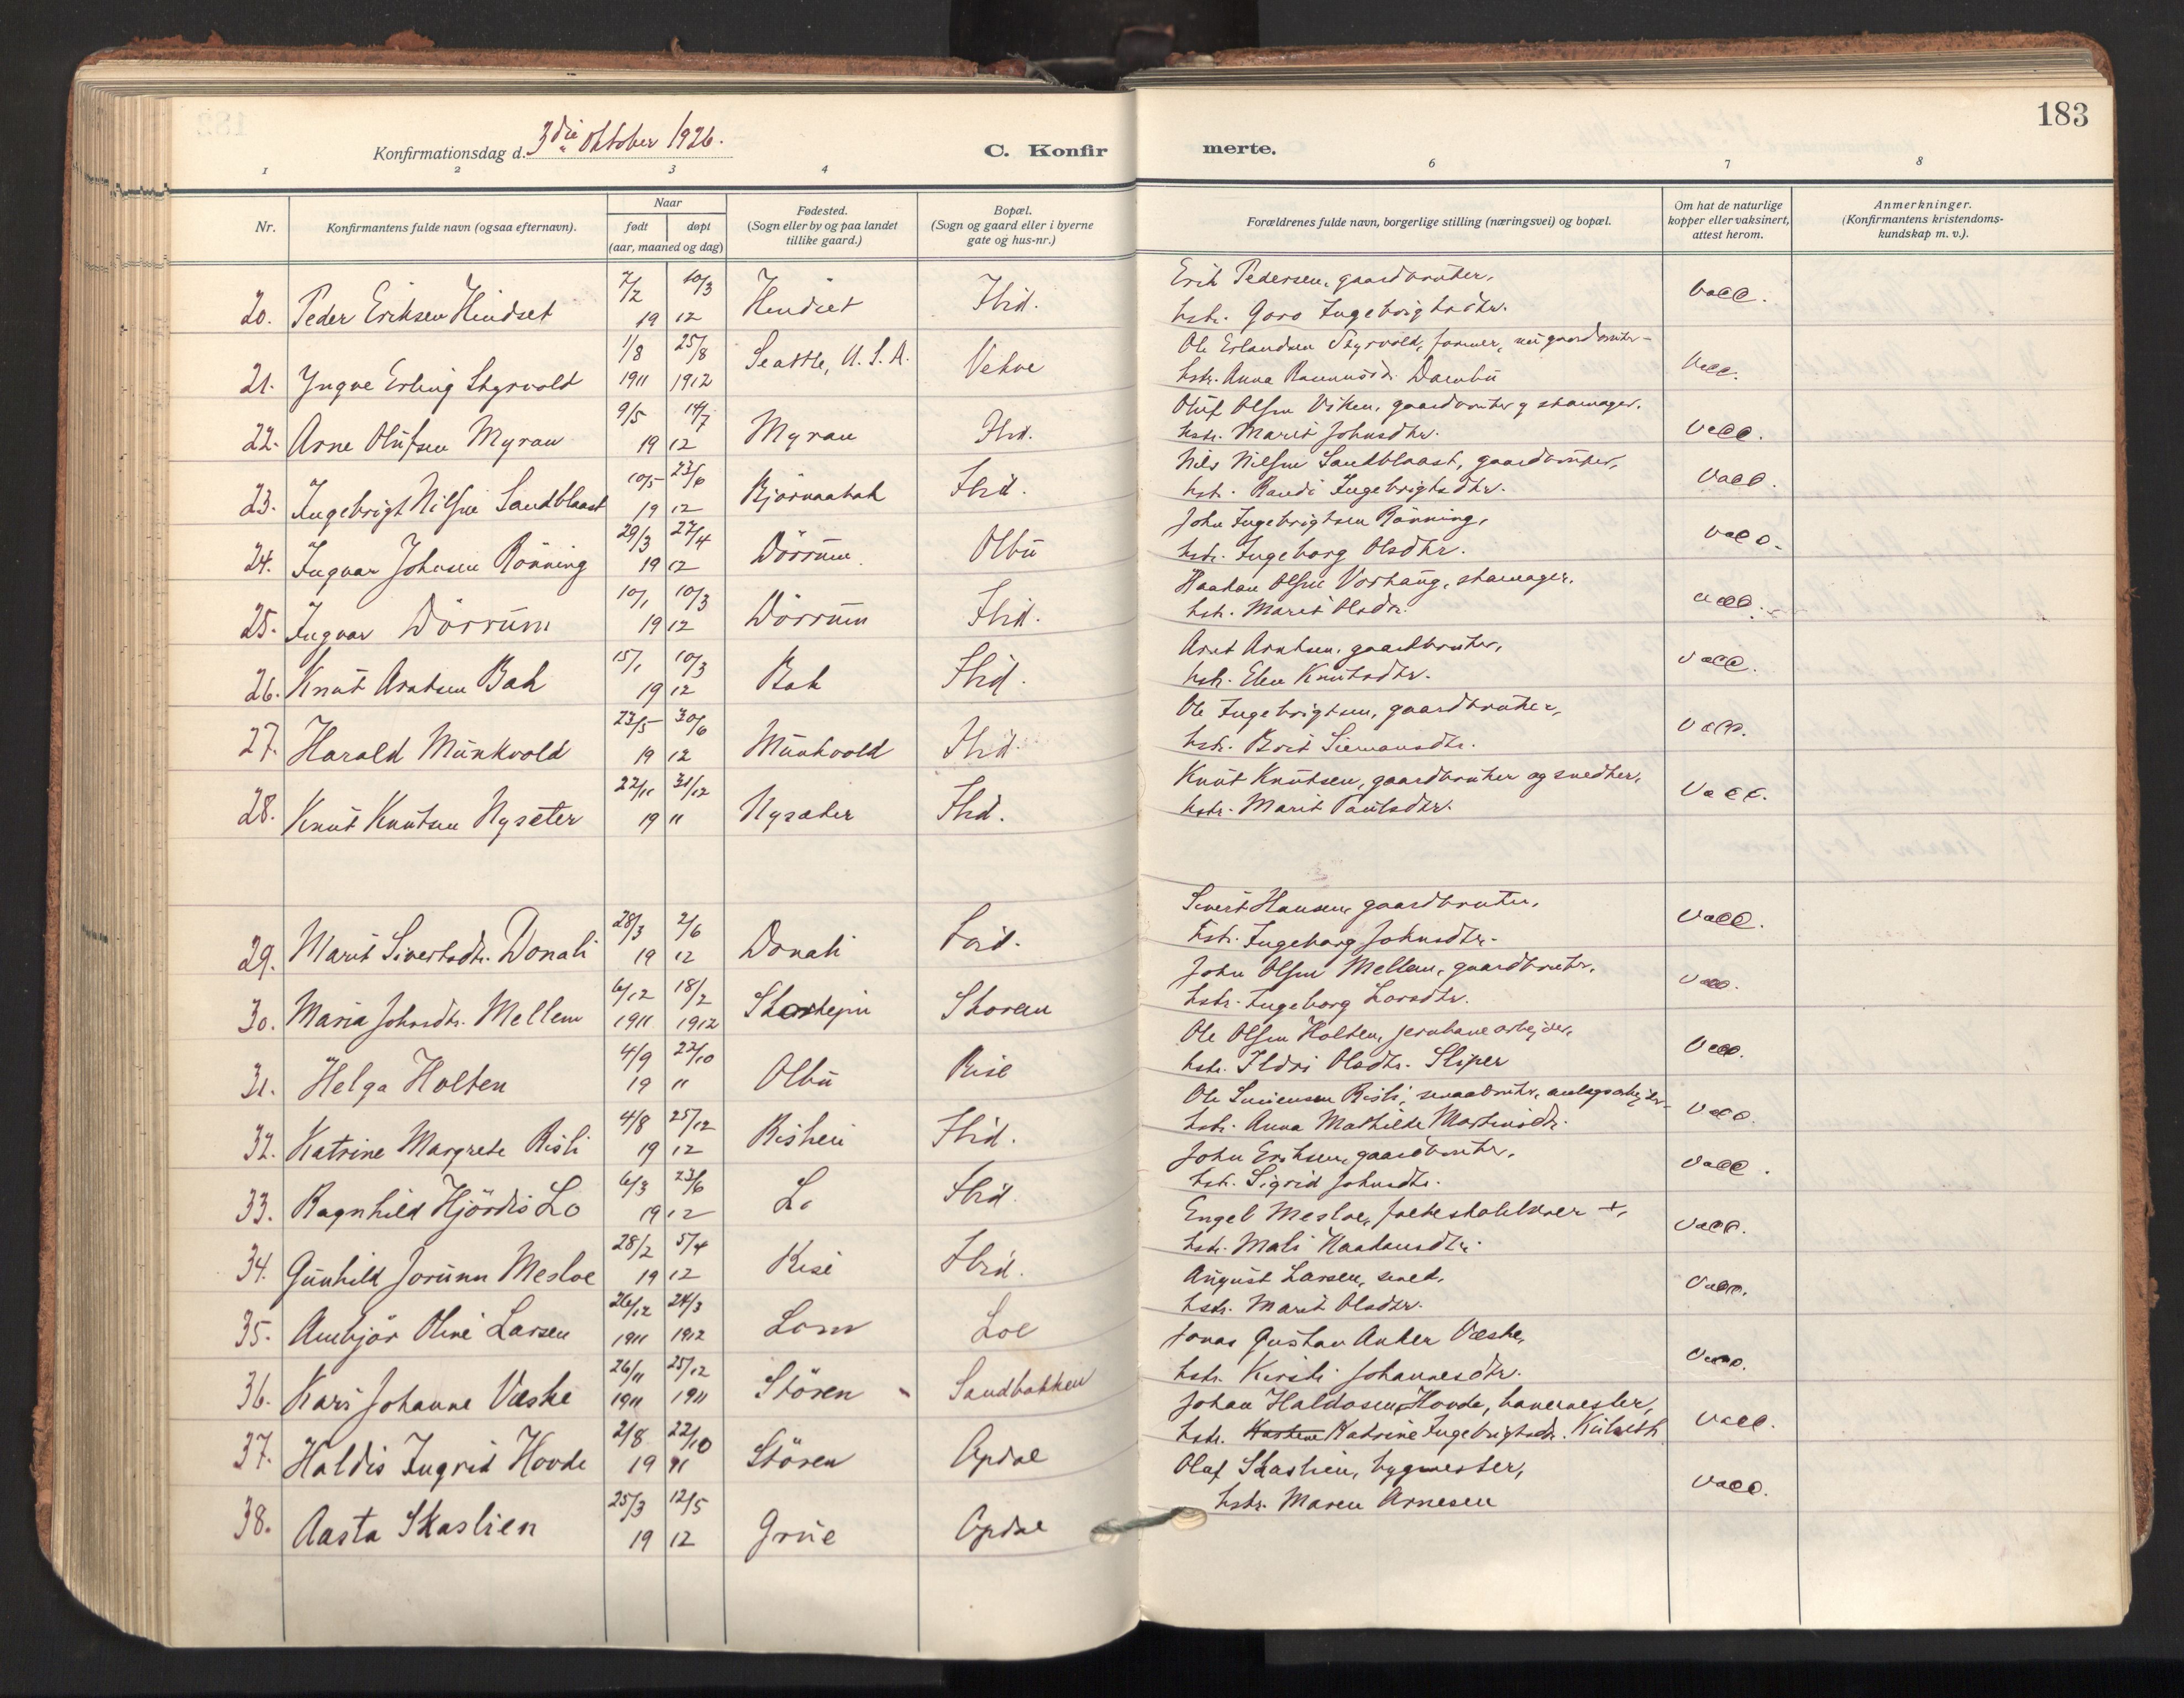 183
Konfirmationsdag d. 3die Oktober 1926.
C. Konfir merte.
1 2 3 4 6 7 8
Nr.
Konfirmantens fulde navn (ogsaa efternavn).
Naar
født døpt
(aar, maaned og dag)
Fødested.
(Sogn eller by og paa landet
tillike gaard.)
Bopæl.
(Sogn og gaard eller i byerne
gate og hus-nr.)
Forældrenes fulde navn, borgerlige stilling (næringsvei) og bopæl.
Om hat de naturlige
kopper eller vaksinert,
attest herom.
Anmerkninger.
(Konfirmantens kristendoms-
kundskap m. v.).
Erik Pedersen, gaardbruker,
20. Peder Eriksen Hindset 7/2 10/3 19 12 Hindset Ibid. vacc.
hstr. Goro Ingebrigtsdtr.
Ole Erlandsen Styrvold, farmer, nu gaardbruker
21. Yngve Erling Styrvold 1/8 1911 25/8 1912 Seattle, U.S.A. Vekve vacc.
hstr. Anna Rasmusd.
Oluf Olsen Viken, gaardbruker og skomager,
22. Arne Olufsen Myran 9/5 14/7 19 12 Myran Ibid. vacc.
hstr. Marit Johnsdtr.
Nils Nilsen Sandblaast, gaardbruker,
23. Ingebrigt Nilsen Sandblaast 10/5 23/6 19 12 Bjørnaabak Ibid. vacc.
hstr. Randi Ingebrigtsdtr.
John Ingebrigtsen Rönning,
24. Ingvar Johnsen Rönning 29/3 27/4 19 12 Dörrum Olbu vacc.
hstr. Ingeborg Olsdtr.
Haakon Olsen Vorhaug, skomager,
25. Ingvar Dörrum 10/1 10/3 19 12 Dörrum Ibid. vacc.
hstr. Marit Olsdtr.
Arnt Arntsen, gaardbruker,
26. Knut Arntsen Bak 15/1 10/3 19 12 Bak Ibid. vacc.
hstr. Elen Knutsdtr.
Ole Ingebrigtsen, gaardbruker,
27. Harald Munkvold 23/5 30/6 19 12 Munkvold Ibid. vacc.
hstr. Brit Siemonsdtr.
Knut Knutsen, gaardbruker og snedker,
28. Knut Knutsen Nysæter 22/11 31/12 19 11 Nysæter Ibid. vacc.
hstr. Marit Paulsdtr.
Sivert Hansen, gaardbruker,
29. Marit Sivertsdtr. Donali 28/3 2/6 19 12 Donali Ibid. vacc.
hstr. Ingeborg Johnsdtr.
John Olsen Mellem, gaardbruker,
30. Maria Johnsdtr. Mellem 6/12 1911 18/2 1912 Skoran vacc.
hstr. Ingeborg Larsdtr.
Ole Olsen Holten, jernbanearbejder,
31. Helga Holten 4/9 22/10 19 11 Olbu Rise vacc.
hstr. Ildri Olsdtr. Sliper
Ole Risli, smaabruker, anlægsarbejder
32. Katrine Margrete Risli 4/8 25/12 19 12 Ibid. vacc.
hstr. Anna Mathilde Martinsdtr.
John Eriksen, gaardbruker,
33. Ragnhild Hjördis Lo 6/3 23/6 19 12 Lo Ibid. vacc.
hstr. Sigrid Johnsdtr.
Engel Mesloe, +,
34. Gunhild Jorunn Mesloe 28/2 5/4 19 12 Rise Ibid. vacc.
hstr. Mali Haakonsdtr.
August Larsen, smed,
35. Ambjör Oline Larsen 26/12 1911 24/3 1912 Lom Loe vacc.
hstr. Marit Olsdtr.
Jonas Gustav Anker Væske,
36. Kari Johanne Væske 26/11 1911 25/12 1911 Stören Sandbakken vacc.
hstr. Kirsti Johannesdtr.
Johan Haldosen Hovde, banemester,
37. Haldis Ingrid Hovde 2/8 22/10 19 11 Stören Opdal vacc.
hstr. Katrine Ingebrigtsdtr.
Olaf Skaslien, bygmester,
38. Aasta Skaslien 25/3 12/5 19 12 Grue Opdal vacc.
hstr. Maren Arnesen